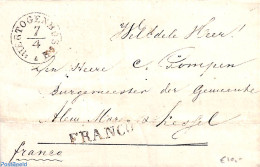 'S HERTOGENBOSCH
7/4
WelEdele Heer!
den Heere C. Pompen
Burgemeester der Gemeente
Alem Maren &
Kessel
FRANCO
franco